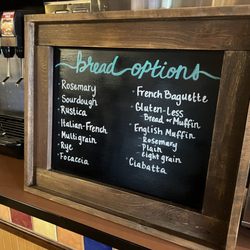 bread options
· Rosemary
· Sourdough
· Rustica
· Italian-French
· Multigrain
· Rye
· Focaccia
· French Baguette
· Gluten-Less
Bread or Muffin
· English Muffin
Rosemary
Plain
Eight grain
· Ciabatta